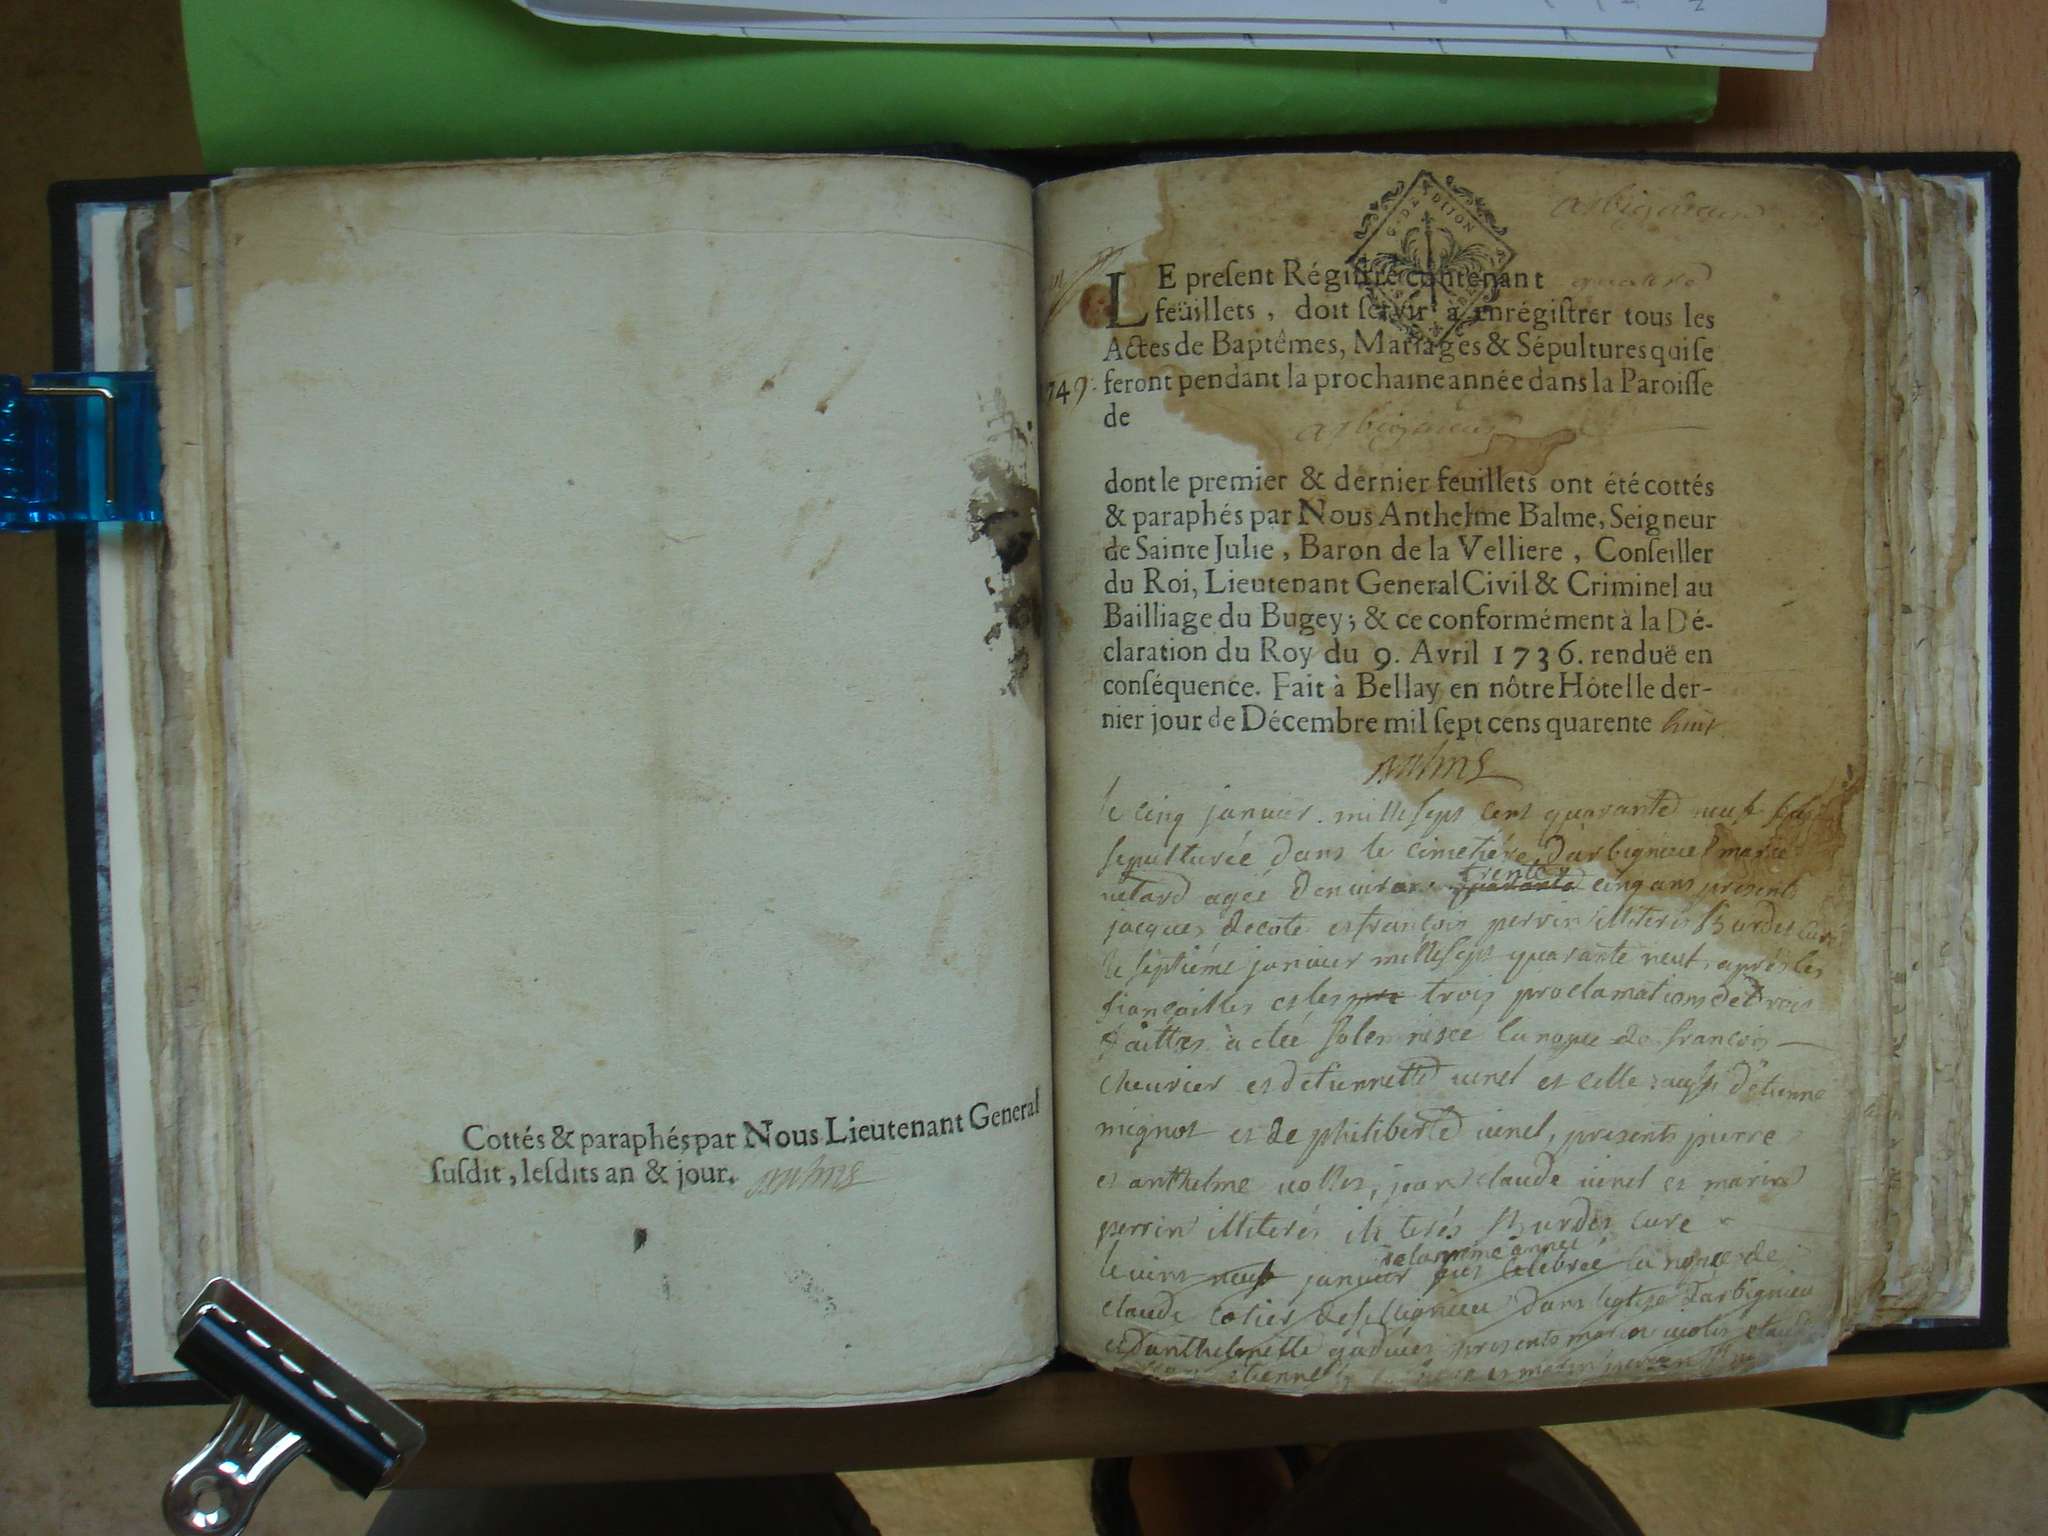 Cottés & paraphés par Nous Lieutenant General
ſuſdit, leſdits an & jour.
G. DE DIJON
arbigneu
LE preſent Régiſtre contenant
feüillets, doit ſervir à enrégiſtrer tous les
Actes de Baptêmes, Mariages & Sépultures qui ſe
749. feront pendant la prochaine année dans la Paroiſſe
de arbigneu
dont le premier & dernier feuillets ont été cottés
& paraphés par Nous Anthelme Balme, Seigneur
de Sainte Julie, Baron de la Velliere, Conſeiller
du Roi, Lieutenant General Civil & Criminel au
Bailliage du Bugey; & ce conformément à la Dé-
claration du Roy du 9. Avril 1736. renduë en
conſéquence. Fait à Bellay en nôtre Hôtel le der-
nier jour de Décembre mil ſept cens quarente huit
le cinq janvier mille sept cent quarante neuf
sepulturée dans le cimetiére d'arbigneu marie
agée d'environ trente quarante cinq ans presents
jacques decote et françois perrin illiterés curé
le septiéme janvier mille sept quarante neuf, après les
fiançailles et les trois proclamations
faittes à eté solemnisée la nopce de françois
chevrier et d'etiennette vinel et celle aussi d'etienne
mignot et de philiberte vinel, presents pierre
et anthelme, jean claude vinel et marin
perrin illiterés illiterés curé
de la meme année
le vint neuf janvier celebrée la nopce de
claude dans l'eglise d'arbigneu
et d'anthelmette presents marin claude